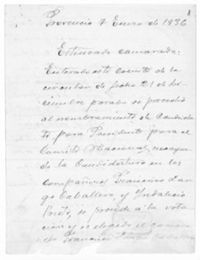 Provencio 7 Enero de 1936
Estimado camarada:
Enterado este Comité de la
circular de fecha 21 de Di-
ciembre pasado se procedió
al nombramiento de Candida-
to para Presidente para el
Comité Nacional,
de la Candidatura en los
compañeros Francisco Lar-
go Caballero y Indalecio
Prieto, se procede a la vota-
ción y es elegido el
Francisco Largo Caballero